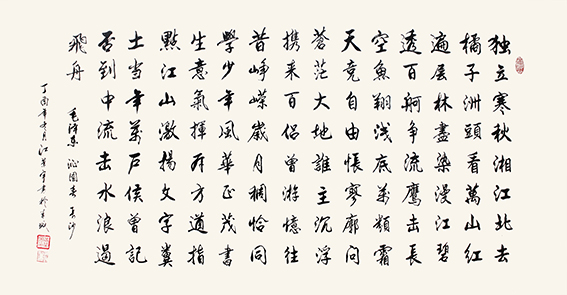 独立寒秋湘江北去
橘子洲頭看萬山红
遍层林盡染漫江碧
透百舸争流鹰击長
空魚翔浅底萬類霜
天竞自由悵寥廓问
蒼茫大地誰主沉浮
携来百侣曾游憶往
昔峥嵘歲月稠恰同
學少年風華正茂書
生意氣揮斥方遒指
點江山激揚文字糞
土当年萬户侯曾記
否到中流击水浪遏
飛舟
毛泽东 沁園春 長沙
丁酉年月江書於羊城